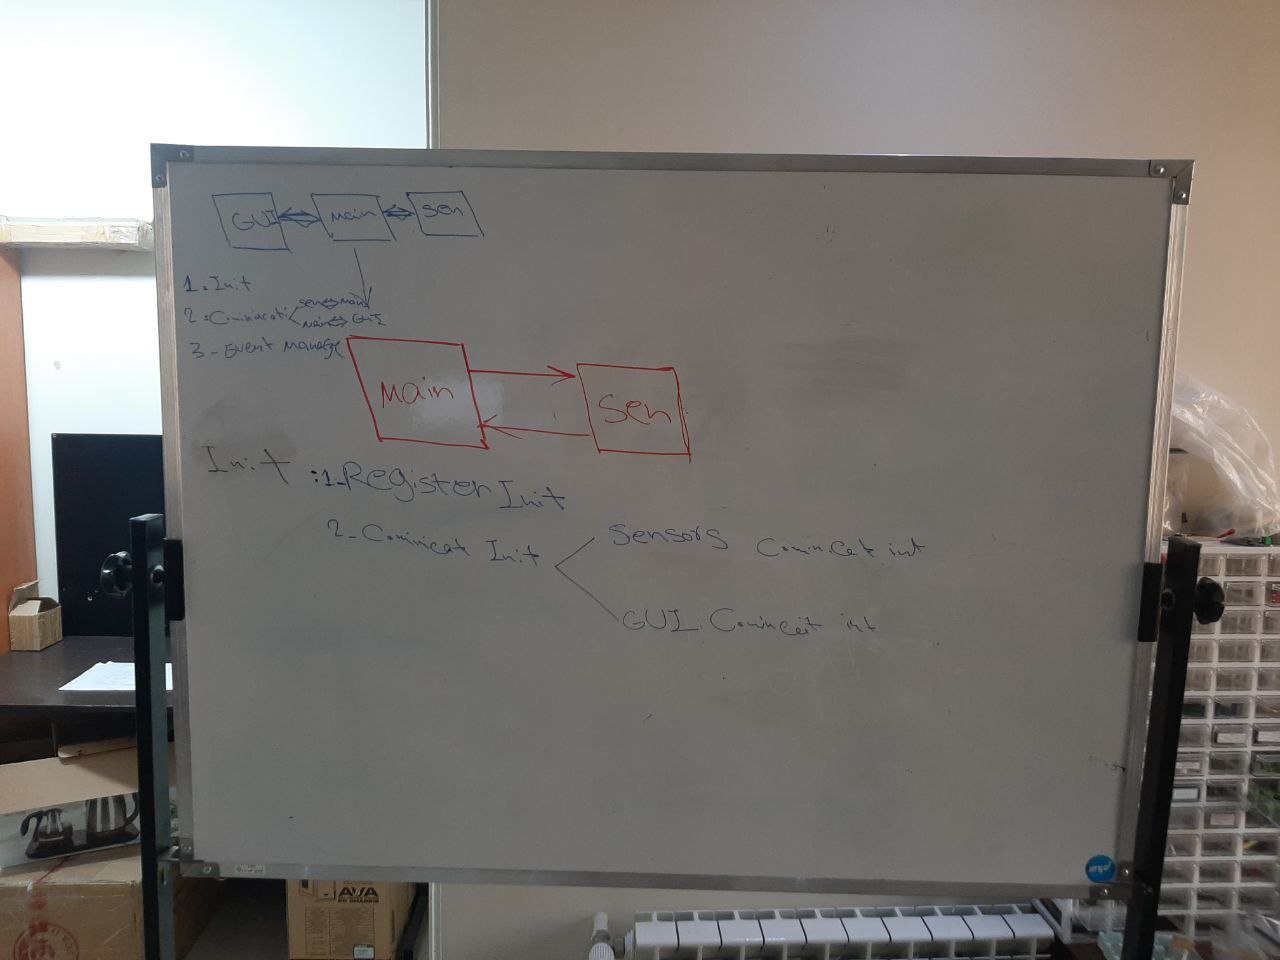 GUI Main Sen
1. Init
2. Cominicati
Sen Main
Main GUI
3 - Event Manage
Main
Sen
Init : 1- Register Init
2 - Cominicat Init
Sensors Comincet int
GUI Cominceit int
AVA